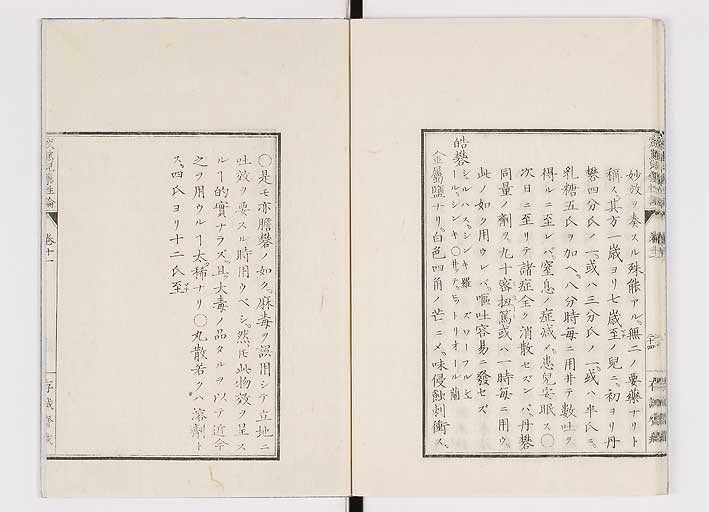 妙效ヲ奏スル殊能アル。無二ノ要藥ナリト
稱ス。其方一歳ヨリ七歳至ノ兒ニ。初ヨリ丹
礬四分氏ノ一。或ハ三分氏ノ一。或ハ半氏ニ。
乳糖五氏ヲ加ヘ。八分時毎ニ用井テ數吐ク
得ルニ至レバ。窒息ノ症减メ。患兒安眠ス〇
次日ニ至リテ諸症全ク消散セズンバ。丹礬
同量ノ劑ヲ。九十密扭篤或ハ一時毎ニ用ウ。
此ノ如ク用ウレバ。嘔吐容易ニ發セズ
皓礬
金屬鹽ナリ。白色四角ノ芒ニメ。味侵蝕刺衝ス。
〇是モ亦膽礬ノ如ク。麻毒ヲ誤用シテ立地ニ
吐效ヲ要スル時用ウベシ。然𪜈此物效ヲ呈ス
ルヿ的實ナラズ。且大毒ノ品タルヲ以テ近今
之ヲ用ウルヿ太稀ナリ〇丸散若クハ溶劑ト
ス。四氏ヨリ十二氏至
卷十一